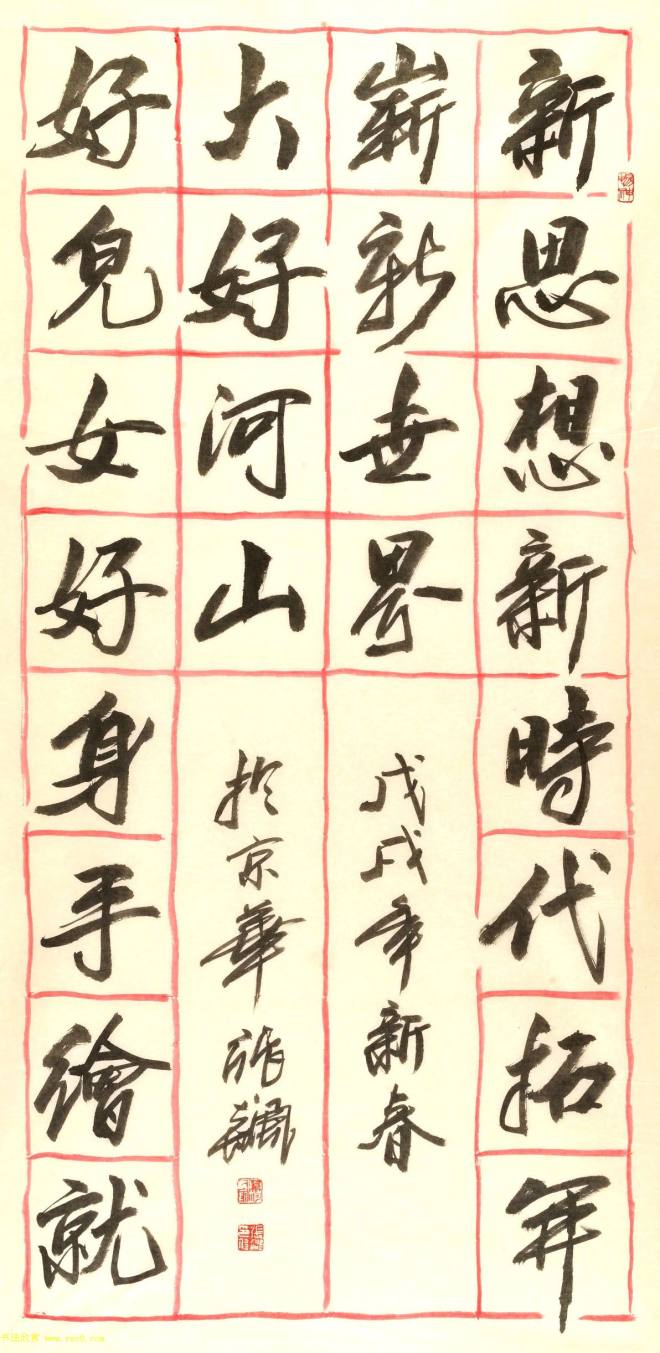 新思想新時代拓开
嶄新世界
戊戌年新春
大好河山
於京華張飆
好兒女好身手繪就
书法欣赏 www.yac8.com